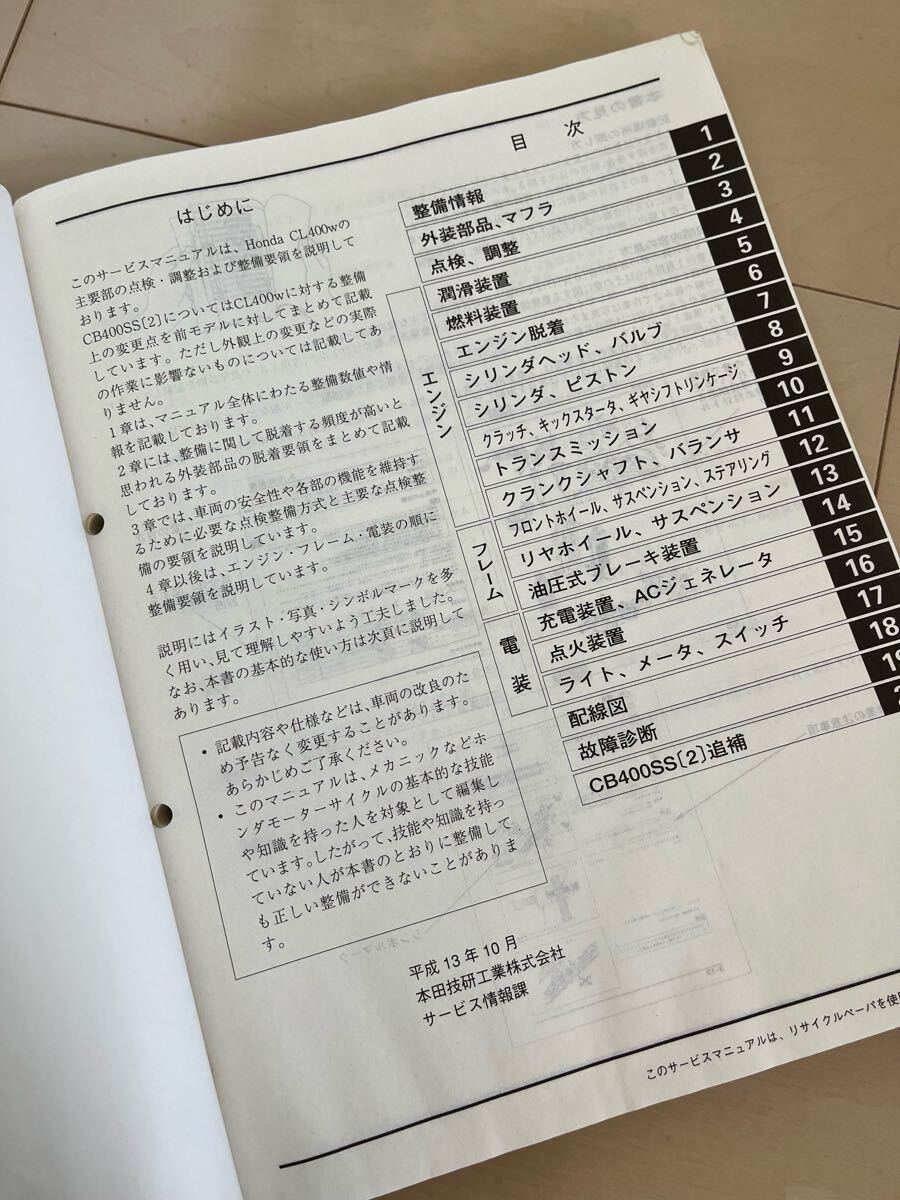 はじめに
このサービスマニュアルは、Honda CL400wの
主要部の点検・調整および整備要領を説明して
おります。
CB400SS〔2〕についてはCL400wに対する整備
上の変更点を前モデルに対してまとめて記載
しています。ただし外観上の変更などの実際
の作業に影響ないものについては記載してあ
りません。
1章は、マニュアル全体にわたる整備数値や情
報を記載しております。
2章には、整備に関して脱着する頻度が高いと
思われる外装部品の脱着要領をまとめて記載
しております。
3章では、車両の安全性や各部の機能を維持す
るために必要な点検整備方式と主要な点検整
備の要領を説明しています。
4章以後は、エンジン・フレーム・電装の順に
整備要領を説明しています。
説明にはイラスト・写真・シンボルマークを多
く用い、見て理解しやすいよう工夫しました。
なお、本書の基本的な使い方は次頁に説明して
あります。
・記載内容や仕様などは、車両の改良のた
め予告なく変更することがあります。
あらかじめご了承ください。
・このマニュアルは、メカニックなどホ
ンダモーターサイクルの基本的な技能
や知識を持った人を対象として編集し
ています。したがって、技能や知識を持っ
ていない人が本書のとおりに整備して
も正しい整備ができないことがありま
す。
平成13年10月
本田技研工業株式会社
サービス情報課
目 次
整備情報 1
外装部品、マフラ 2
点検、調整 3
エンジン
潤滑装置 4
燃料装置 5
エンジン脱着 6
シリンダヘッド、バルブ 7
シリンダ、ピストン 8
クラッチ、キックスタータ、ギヤシフトリンケージ 9
トランスミッション 10
クランクシャフト、バランサ 11
フレーム
フロントホイール、サスペンション、ステアリング 12
リヤホイール、サスペンション 13
油圧式ブレーキ装置 14
電装
充電装置、ACジェネレータ 15
点火装置 16
ライト、メータ、スイッチ 17
配線図 18
故障診断 19
CB400SS〔2〕追補 2
このサービスマニュアルは、リサイクルペーパを使